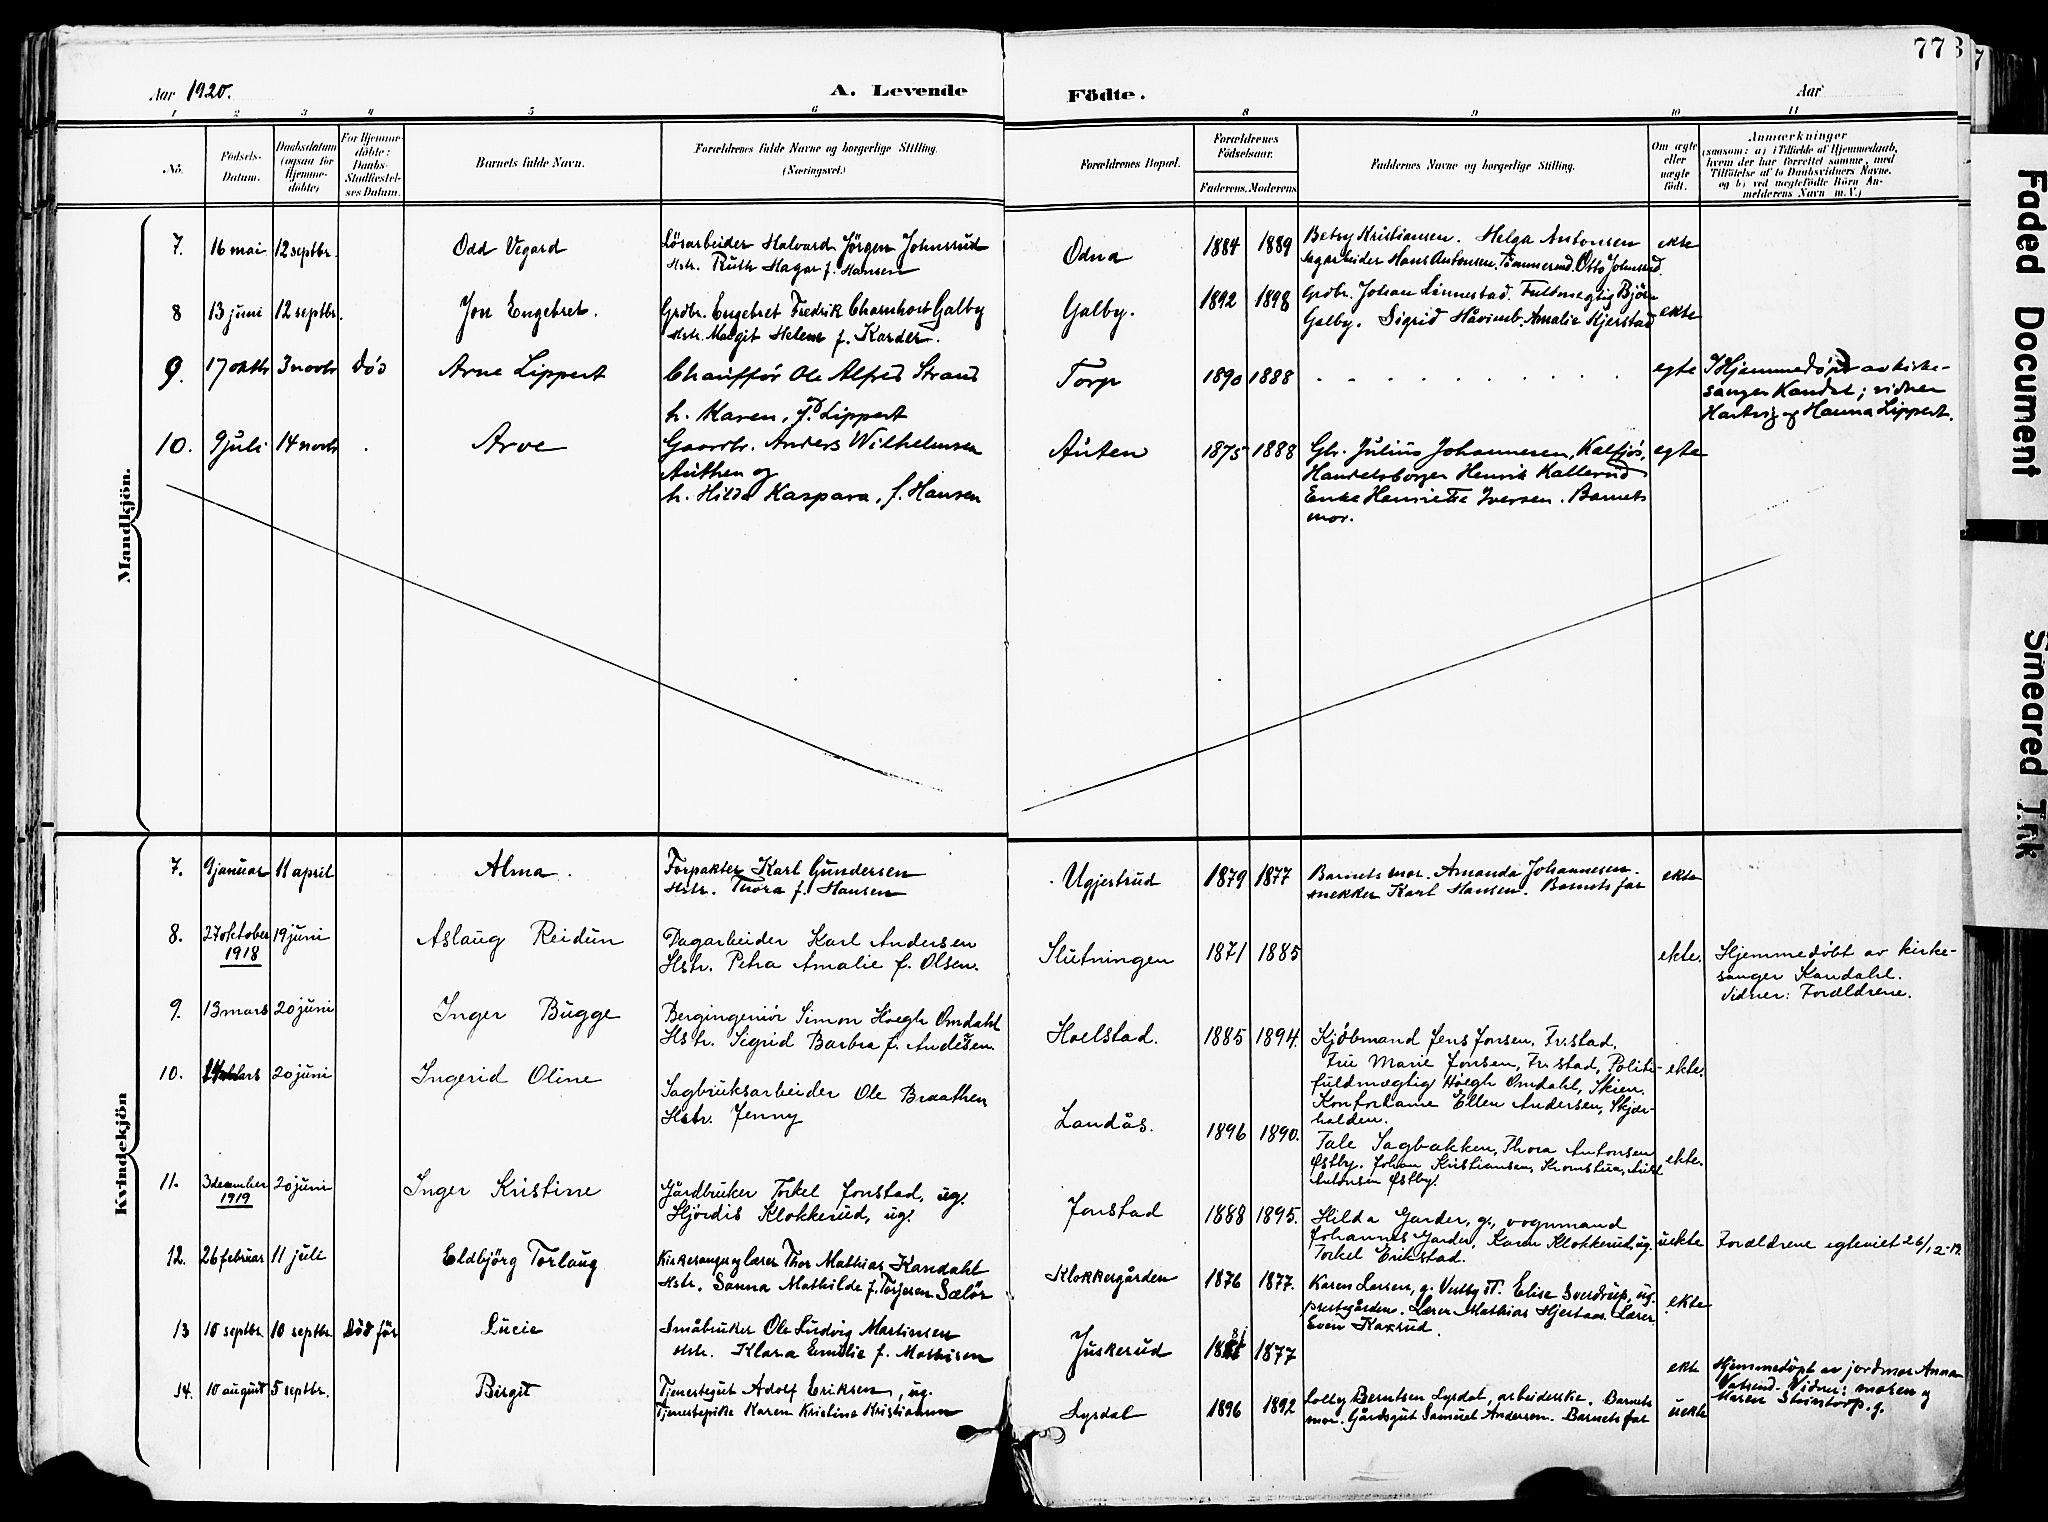 773
Aar 1920.
A. Levende
Födte.
Aar
1 2 3 4 5 6 8 9 10 11
No.
Födsels-Datum.
Daabsdatum (ogsaa for Hjemme-döbte)
For Hjemme-döbte: Daabs-Stadfæstel-ses Datum.
Barnets fulde Navn.
Forældrenes fulde Navne og borgerlige Stilling. (Næringsvei.)
Forældrenes Bopæl.
Forældrenes Födselsaar.
Faderens. Moderens
Faddernes Navne og borgerlige Stilling.
Om ægte eller uægte födt.
Anmærkninger
(saasom: a) i Tilfælde af Hjemmedaab,
hvem der har forrettet samme, med
Tilföielse af to Daabsvidners Navne.
og b) ved uægtefödte Börn An-
melderens Navn m. V.)
Mandkjön.
7. 16 mai 12 septbr. Odd Vegard
Løsarbeider Halvard Jörgen Johnsrud
Hstr. Ruth Hagar f. Hansen
Odna 1884 1889
Betsy Kristiansen. Helga Antonsen
Sagarbeider Hans Antonsen. Otto Johnsrud.
ekte
8 13 juni 12 septbr. Jon Engebret.
Grdbr. Engebret Fredrik Galby
Hstr. Margit Helene f. Karder.
Galby. 1892 1898
Grdbr. Johan Linnestad. Fuldmegtig Björn
Galby. Sigrid Amalie Hjerstad
ekte
9. 17 oktbr 3 novbr död Arne Lippert
Chauffør Ole Alfred Strand
h. Karen, f. Lippert
Torp 1890 1888
egte
Hjemmedøpt av kirke-
sanger Kandal; vidner
Hartvig og Hanna Lippert.
10. 9 juli 14 novbr. Arve
Gaardbr. Anders Wilhelmsen
Authen og
h. Hilda Kaspara, f. Hansen
Auten 1875 1888
Gbr. Julius Johannesen, Kalfjös,
Handelsborger Henrik Kallerud
Enke Henriette Iversen. Barnets
mor.
egte
Kvindekjön
7. 9 januar 11 april Alma.
Forpakter Karl Gundersen
Hstr. Thora f. Hansen
Ugjestrud 1879 1877
Barnets mor. Amanda Johannesen.
snekker Karl Hansen. Barnets far
ekte
8. 27 oktober 19 juni Aslaug Reidun
1918
Dagarbeider Karl Andersen
Hstr. Petra Amalie f. Olsen.
Slutningen 1871 1885
ekte.
Hjemmedøbt av kirke-
sanger Kandahl.
Vidner: Forældrene.
9. 13 mars 20 juni Inger Bugge
Bergingeniør Simon Høegh Omdahl
Hstr. Sigrid Barbra f. Andersen.
Hoelstad. 1885 1894.
Kjøbmand Jens Jonsen, Fr.stad.
Fru Marie Jonsen, Fr.stad, Politi-
fuldmægtig Høegh Omdahl, Skien.
Kontordame Ellen Andersen, Skjær-
halden.
ekte.
10. 20 juni Ingerid Oline
Sagbruksarbeider Ole Braathen
Hstr. Jenny
Landås. 1896 1890.
Tale Sagbakken, Thora Antonsen
Østby. Johan Kristiansen,
Antonsen Østby.
ekte.
11. 3 december 20 juni Inger Kristine
1919
Gårdbruker Torkel Jonstad, ug.
Hjørdis Klokkerud, ug.
Jonstad 1888 1895.
Hilda Garder, g., vognmand
Johannes Garder, Karen Klokkerud, ug.
Torkel Erikstad.
uekte
Forældrene egteviet 26/12-19
12. 26 februar 11 juli Eldbjörg Torlaug
Kirkesanger og lærer Thor Mathias Kandahl
Hstr. Sanna Mathilde f. Torjesen Sælör
Klokkergården 1876 1877.
Karen Larsen, g. Vestby st. Elise Sverdrup, ug.
prestegården. Lærer Mathias Hjertaas. Lærer
Even Kaxrud.
ekte
13 10 septbr. 10 septbr. Död för Lucie
Småbruker Ole Ludvig Martinsen
Hstr. Klara Emilie f. Mathisen
Juskerud 1881 1877
ekte
Hjemmedøpt av jordmor Anna
Vidner: moren og
Maren Steinstorp, g.
14. 10 august 5 septbr. Birgit
Tjenestegut Adolf Eriksen, ug.
Tjenestepike Karen Kristine Kristiansen
Lysdal 1896 1892
Lolly Berntsen Lysdal, arbeiderske. Barnets
mor. Gårdsgut Samuel Andersen. Barnets far
uekte
Faded Document
Smeared Ink